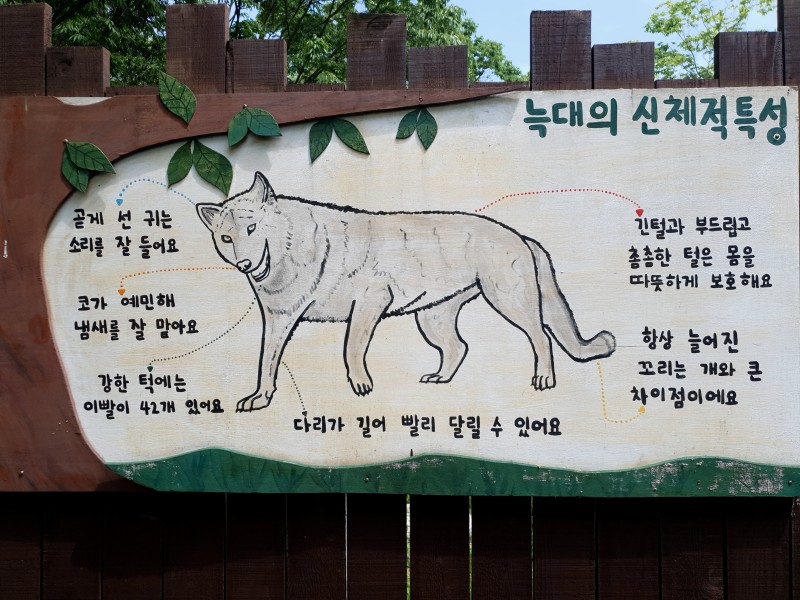 늑대의 신체적특성
곧게 선 귀는
소리를 잘 들어요
코가 예민해
냄새를 잘 맡아요
강한 턱에는
이빨이 42개 있어요
다리가 길어 빨리 달릴 수 있어요
긴털과 부드럽고
촘촘한 털은 몸을
따뜻하게 보호해요
항상 늘어진
꼬리는 개와 큰
차이점이에요